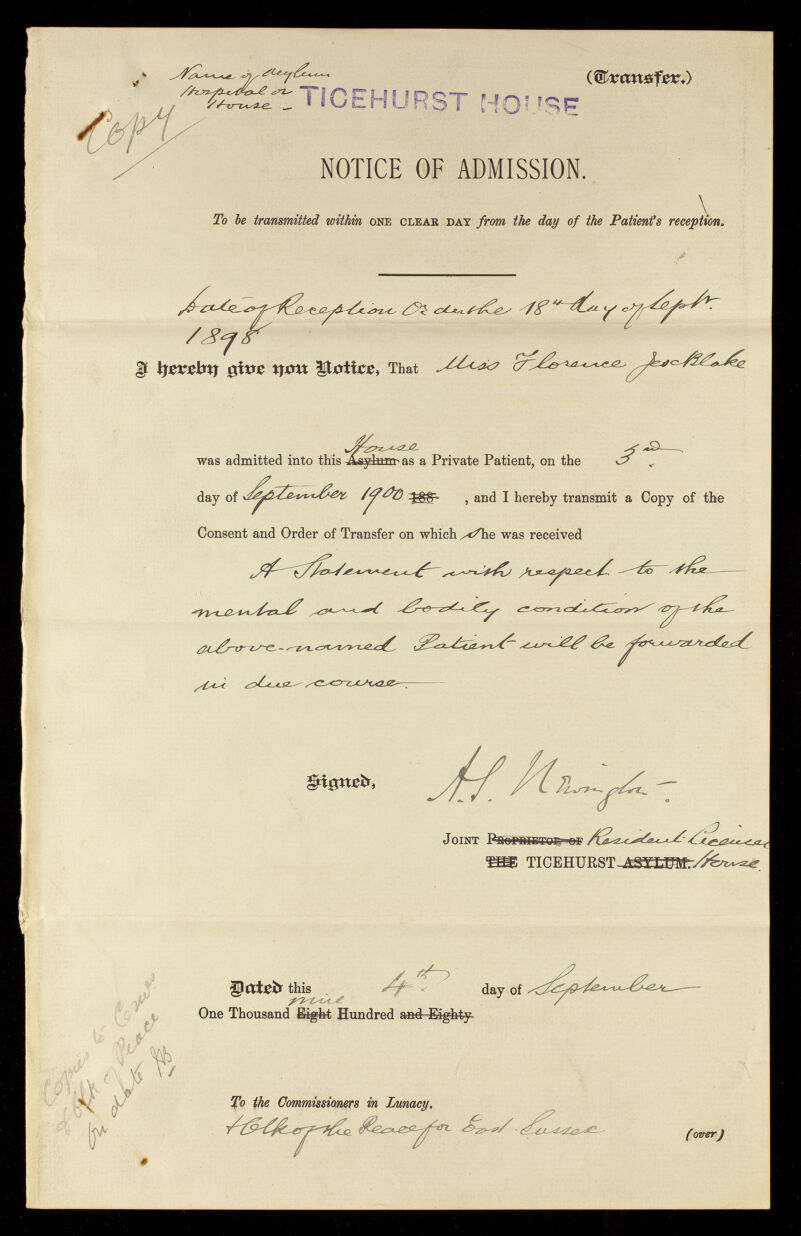 Name of Asylum
Hospital or
House -
TICEHURST HOUSE
(Transfer.)
Copy
NOTICE OF ADMISSION.
To be transmitted within ONE CLEAR DAY from the day of the Patient's reception.
Date of Reception Order the 18th day of Septr.
1898
I hereby give you Notice, That Miss Florence Jex Blake
House
was admitted into this Asylum as a Private Patient, on the 3rd.
day of September 1900 188 , and I hereby transmit a Copy of the
Consent and Order of Transfer on which she was received
A Statement with respect to the
mental and bodily condition of the
above-named Patient will be forwarded
in due course.
Signed, A.S. Newington.
JOINT PROPRIETOR OF Resident Licensee
THE TICEHURST ASYLUM. House.
Dated this 4th. day of September
nine
One Thousand Eight Hundred and Eighty
Copies to Coms
& Clk of Peace
on date
To the Commissioners in Lunacy.
& Clk of the Peace for East Sussex
(over)